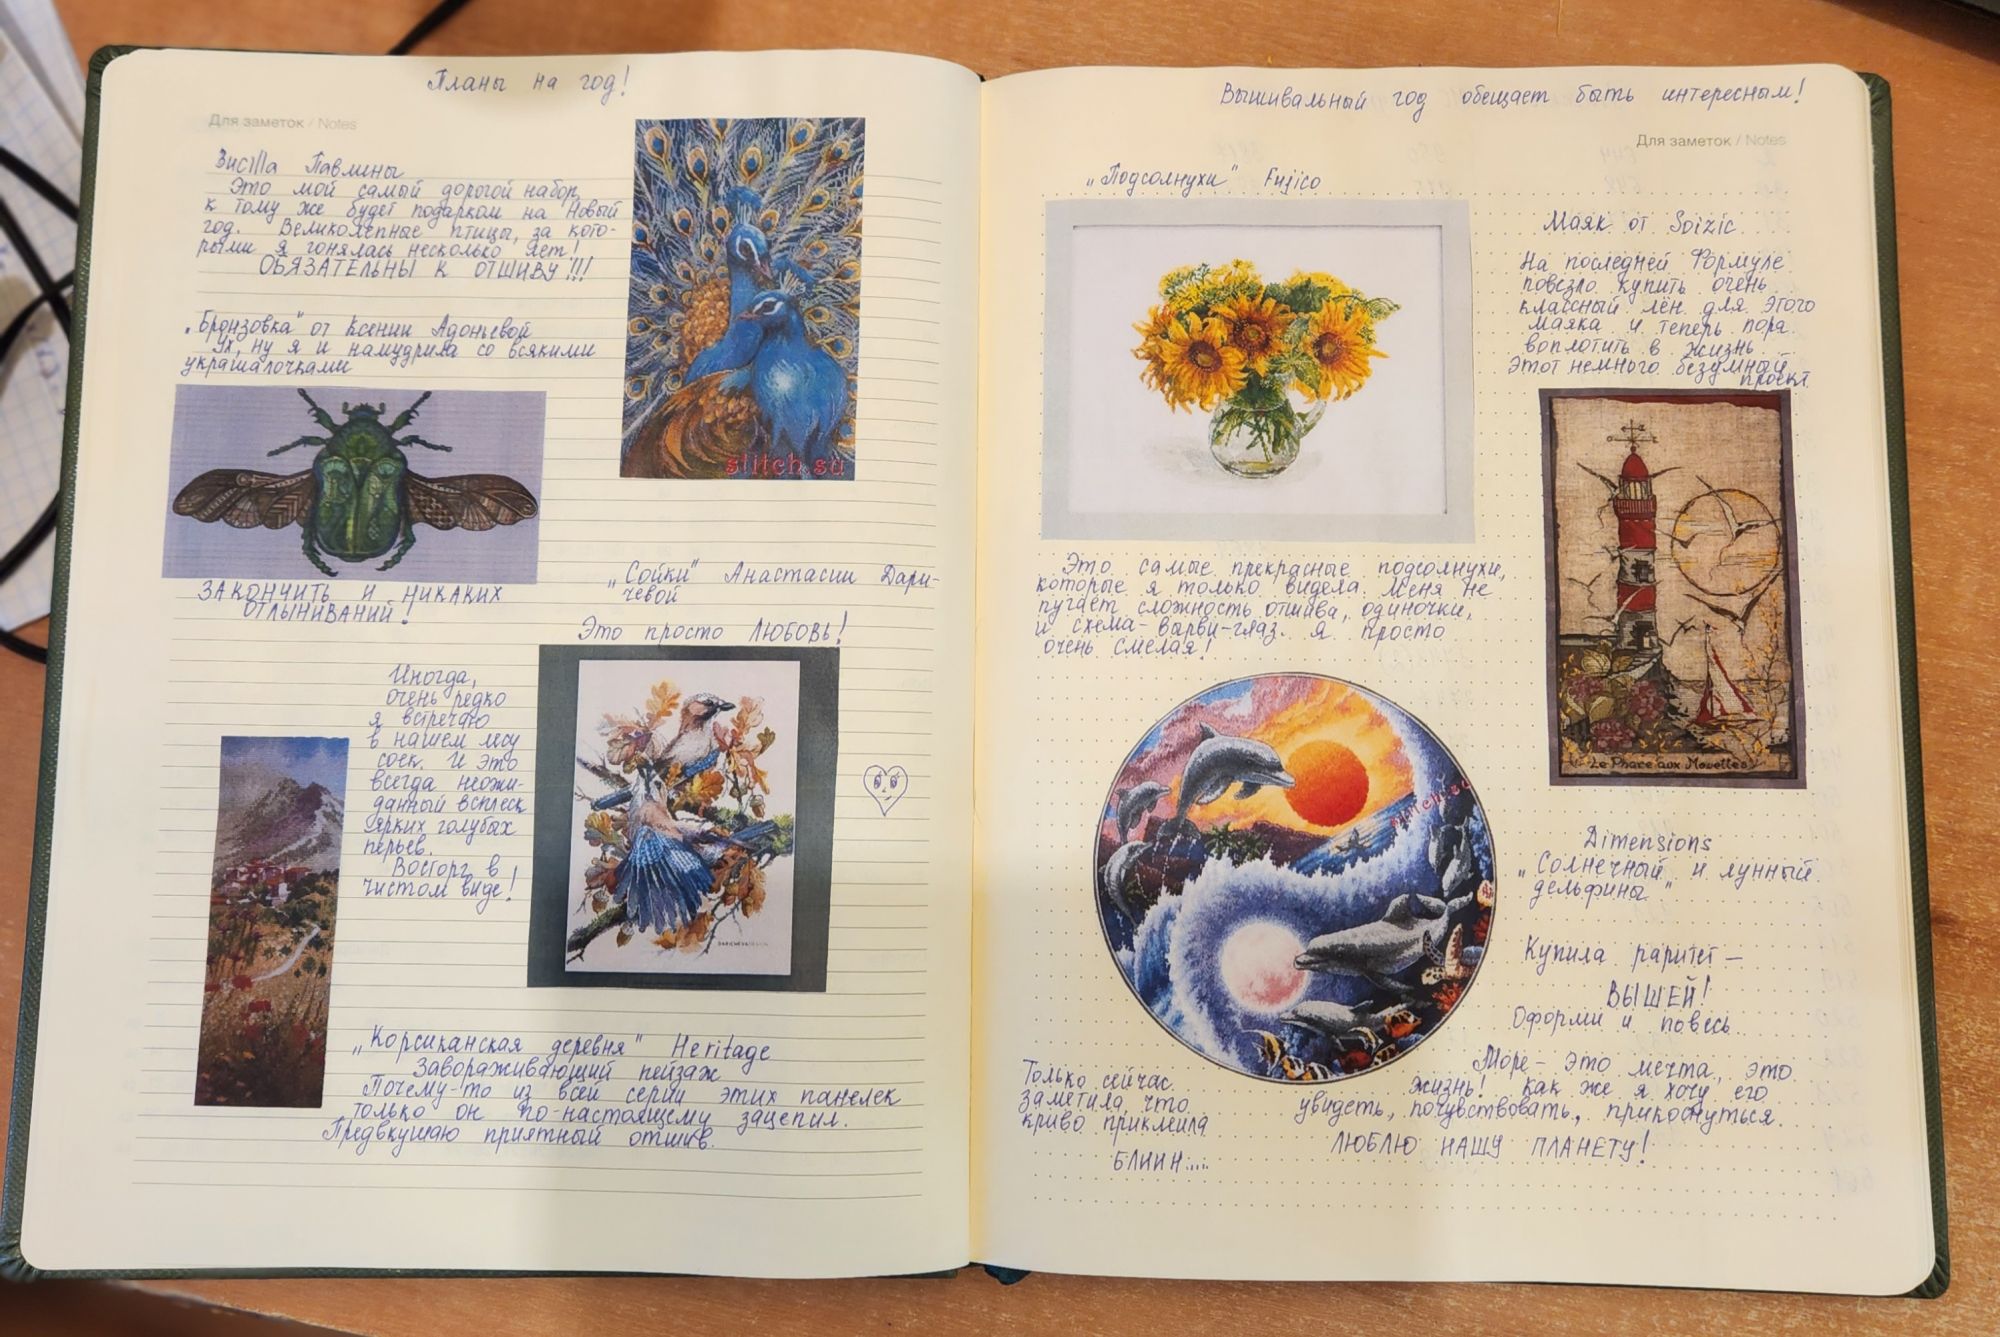 Планы на год!
Для заметок / Notes
Висlla Павлины
Это мой самый дорогой набор,
к тому же будет подарком на Новый
год. Великолепные птицы, за кото-
рыми я гонялась несколько лет!
ОБЯЗАТЕЛЬНЫ К ОТШИВУ!!!
stitch.su
„Бронзовка" от Ксении Адоньевой
Ух, ну я и намудрила со всякими
украшалочками
ЗАКОНЧИТЬ И НИКАКИХ
ОТЛЫНИВАНИЙ!
„Сойки" Анастасии Дари-
чевой
Это просто ЛЮБОВЬ!
Иногда,
очень редко
я встречаю
в нашем лесу
соек. И это
всегда неожи-
данный всплеск
ярких голубых
перьев.
Восторг в
чистом виде!
„Корсиканская деревня" Heritage
Завораживающий пейзаж
Почему-то из всей серии этих панелек
только он по-настоящему зацепил.
Предвкушаю приятный отшив.
Вышивальный год обещает быть интересным!
Для заметок / Notes
„Подсолнухи" Fujico
Это самые прекрасные подсолнухи,
которые я только видела. Меня не
пугает сложность отшива, одиночки,
и схема-вырви-глаз. Я просто
очень смелая!
Маяк от Soizic
На последней Формуле
повезло купить очень
классный лён для этого
маяка и теперь пора
воплотить в жизнь
этот немного безумный
проект
Le Phare aux Mouettes
Dimensions
„Солнечный и лунный
дельфины"
Купила раритет —
ВЫШЕЙ!
Оформи и повесь.
Море - это мечта, это
жизнь! Как же я хочу его
увидеть, почувствовать, прикоснуться.
ЛЮБЛЮ НАШУ ПЛАНЕТУ!
Только сейчас
заметила, что
криво приклеила
БЛИИН....